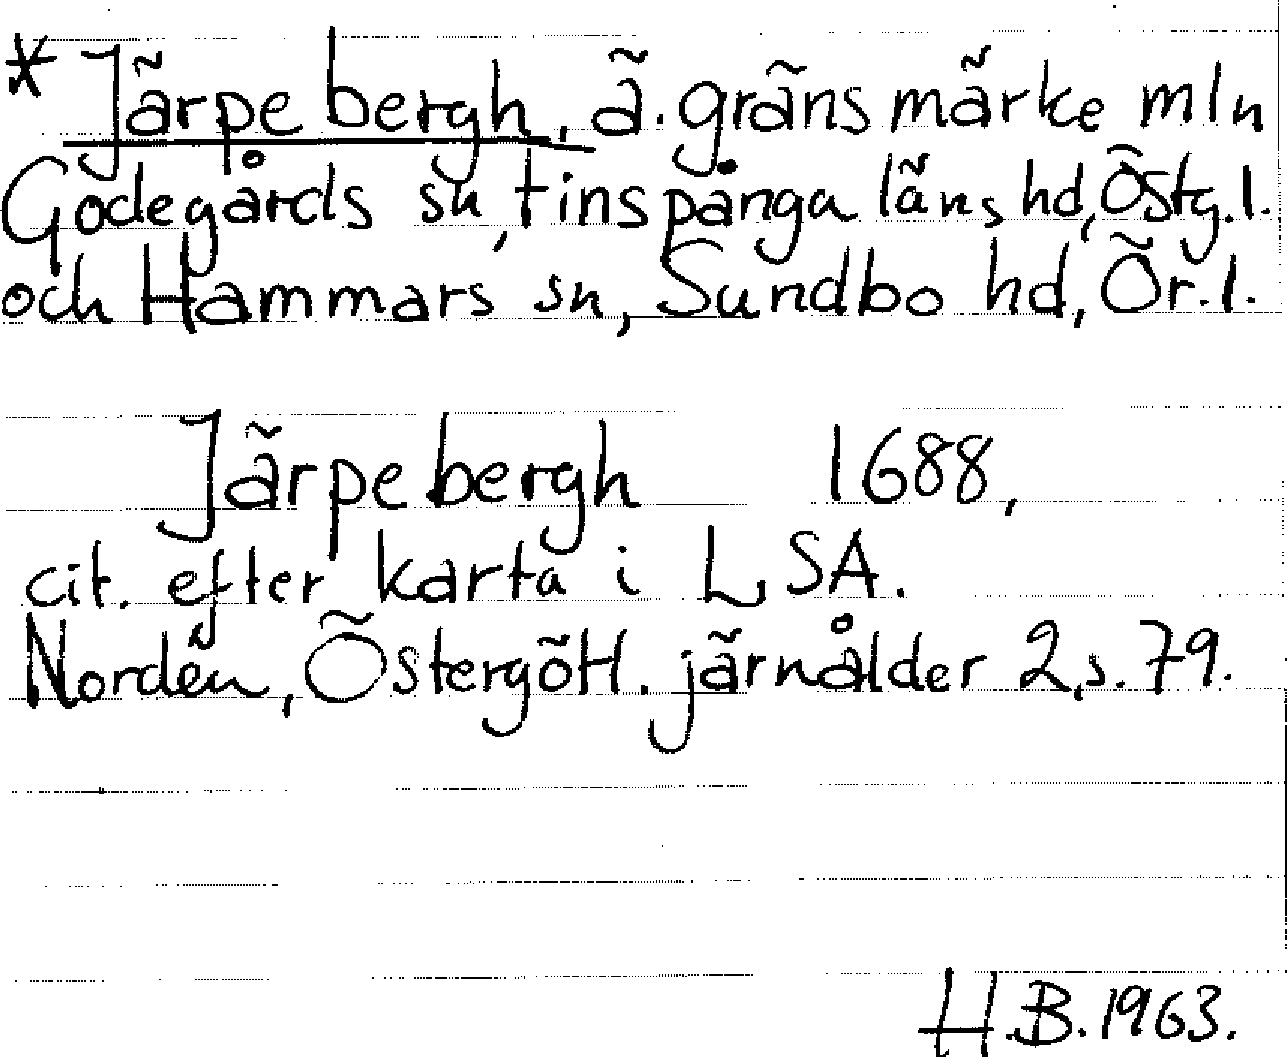 * Järpebergh, ä. gränsmärke mln
Godegårds sn, Finspånga läns hd, Östg. l.
och Hammars sn, Sundbo hd, Ör. l.
Järpebergh 1688,
cit. efter karta i LSA.
Nordén, Östergötl. järnålder 2, s. 79.
H.B. 1963.